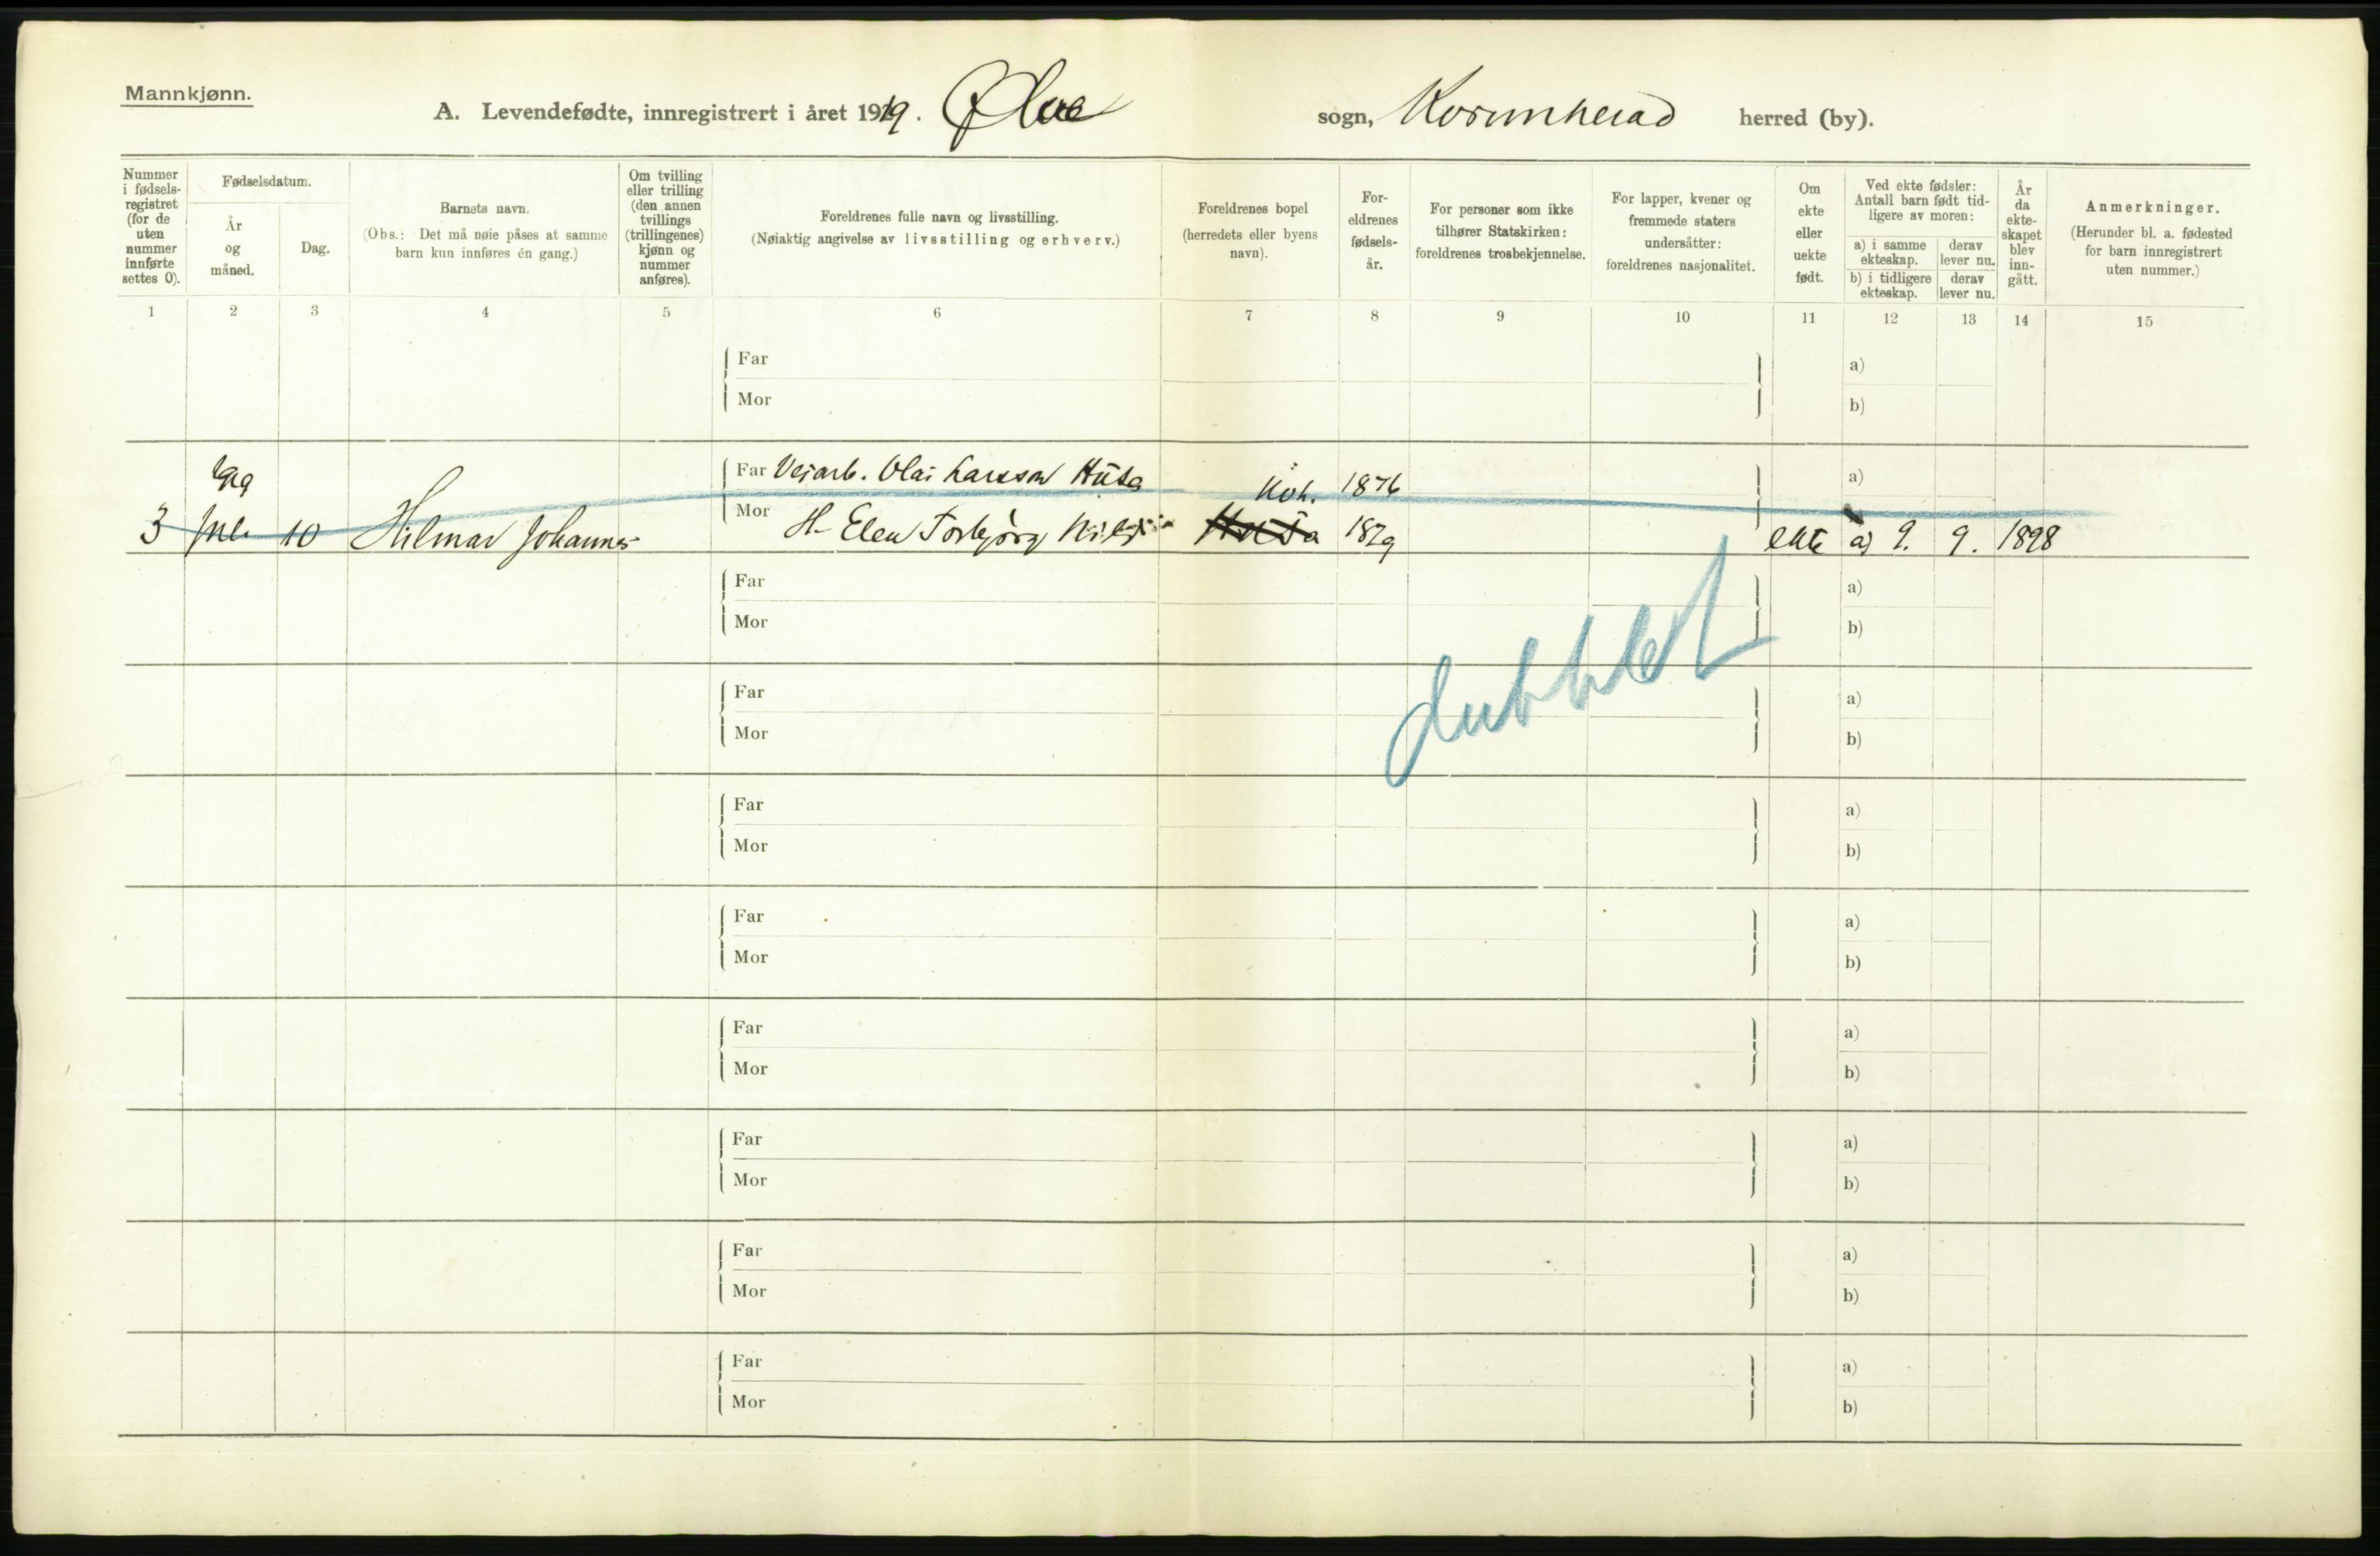 Mannkjønn.
A. Levendefødte, innregistrert i året 1919. Ølve sogn, Kvinnherad herred (by).
Nummer i fødsels-registret (for de uten nummer innførte settes 0).
Fødselsdatum.
År og måned.
Dag.
Barnets navn.
(Obs.: Det må nøie påses at samme barn kun innføres én gang.)
Om tvilling eller trilling (den annen tvillings (trillingenes) kjønn og nummer anføres).
Foreldrenes fulle navn og livsstilling.
(Nøiaktig angivelse av livsstilling og erhverv.)
Foreldrenes bopel (herredets eller byens navn).
For-eldrenes fødsels-år.
For personer som ikke tilhører Statskirken: foreldrenes trosbekjennelse.
For lapper, kvener og fremmede staters undersåtter: foreldrenes nasjonalitet.
Om ekte eller uekte født.
Ved ekte fødsler: Antall barn født tid-ligere av moren:
a) i samme ekteskap.
derav lever nu.
b) i tidligere ekteskap.
derav lever nu.
År da ekte-skapet blev inn-gått.
Anmerkninger.
(Herunder bl. a. fødested for barn innregistrert uten nummer.)
1 2 3 4 5 6 7 8 9 10 11 12 13 14 15
Far a)
Mor b)
1919 Far Veiarb. Olai Larsson Husa Kvh. 1876 a)
3 Juli 10 Hilmar Johannes Mor H. Elen Torbjørg Husa 1879 ekte a) 9. 9. 1898
Far a)
Mor b)
dubblet
Far a)
Mor b)
Far a)
Mor b)
Far a)
Mor b)
Far a)
Mor b)
Far a)
Mor b)
Far a)
Mor b)
Far a)
Mor b)